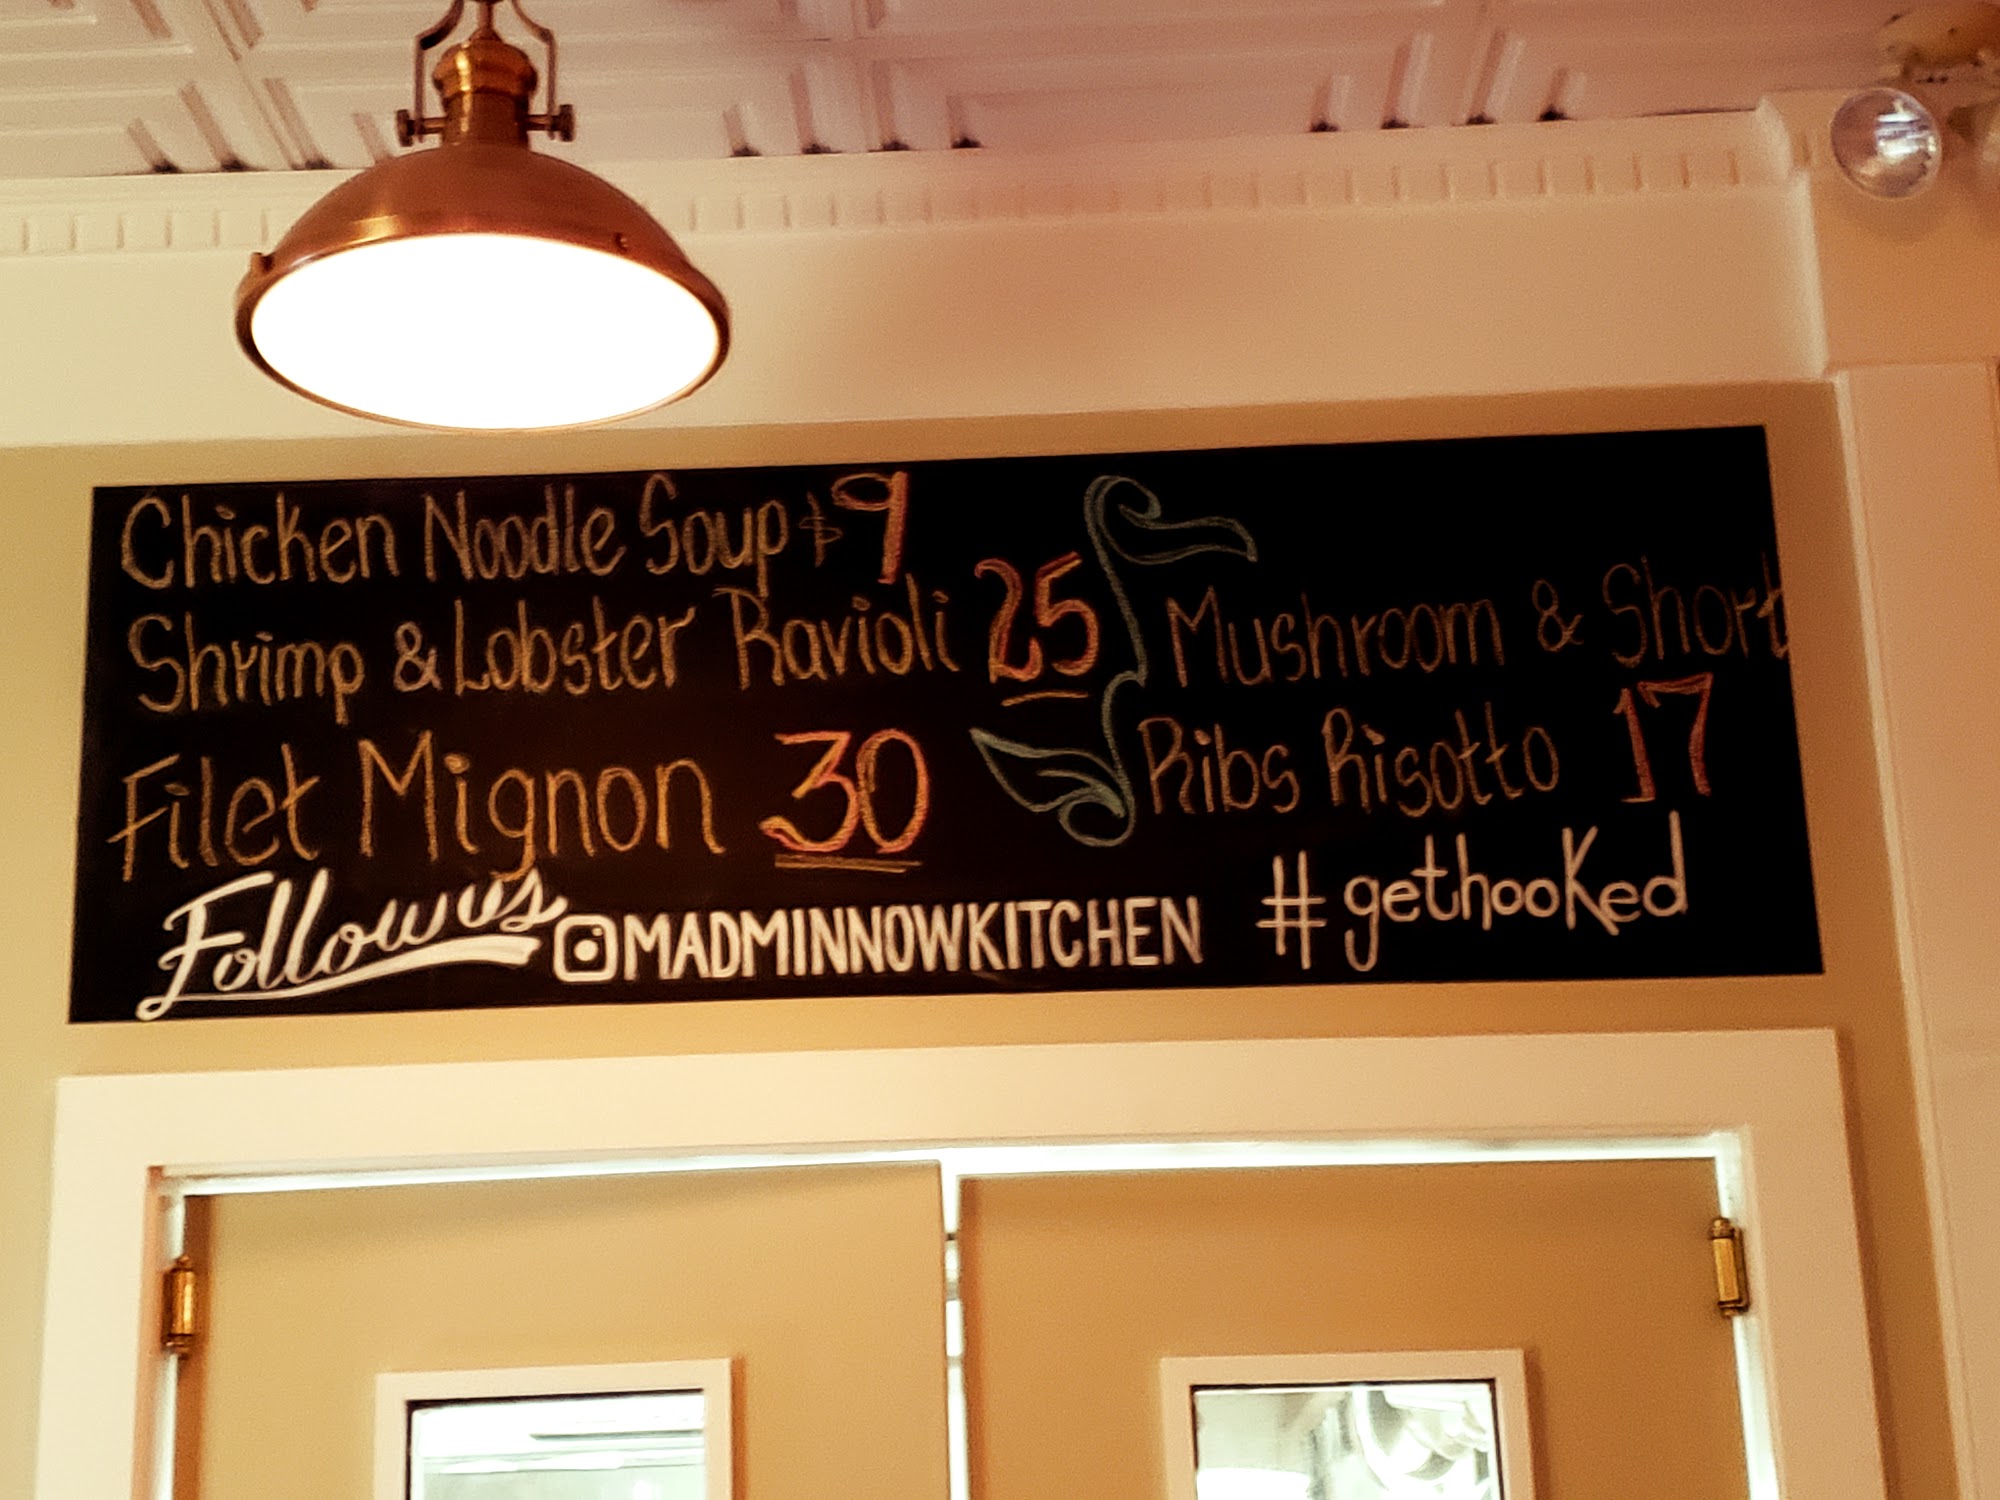 Chicken Noodle Soup $9
Shrimp & Lobster Ravioli 25
Filet Mignon 30
Mushroom & Short
Ribs Risotto 17
Follow us @MADMINNOWKITCHEN #gethooked